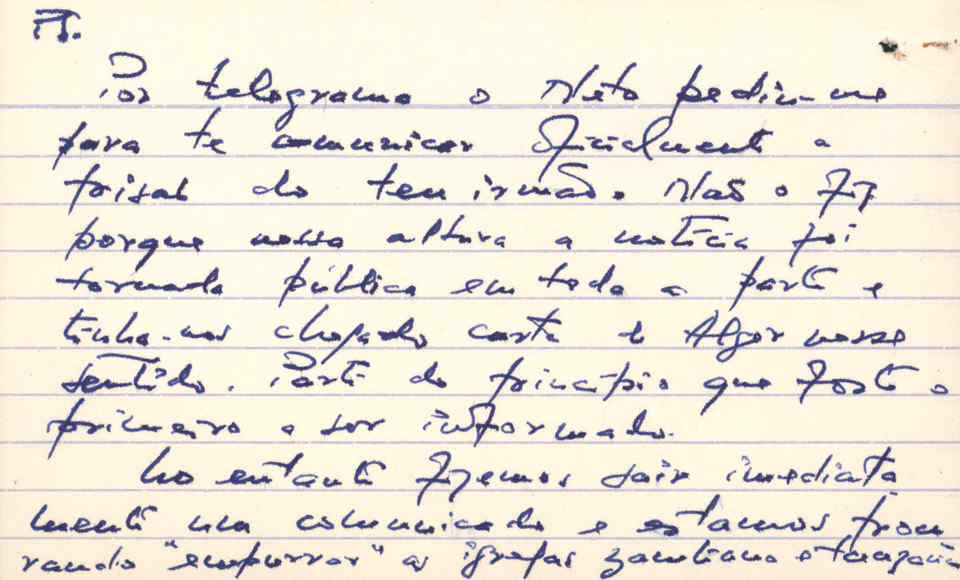 PS.
Por telegrama o Neto pediu-me
para te comunicar oficialmente a
prisão do teu irmão. Não o fiz
porque nessa altura a notícia foi
tornada pública em toda a parte e
tinha-nos chegado carta de Alger nesse
sentido. Parti do princípio que foste o
primeiro a ser informado.
No entanto fizemos sair imediata
mente um comunicado e estamos procu
rando "empurrar" as igrejas zambiana e